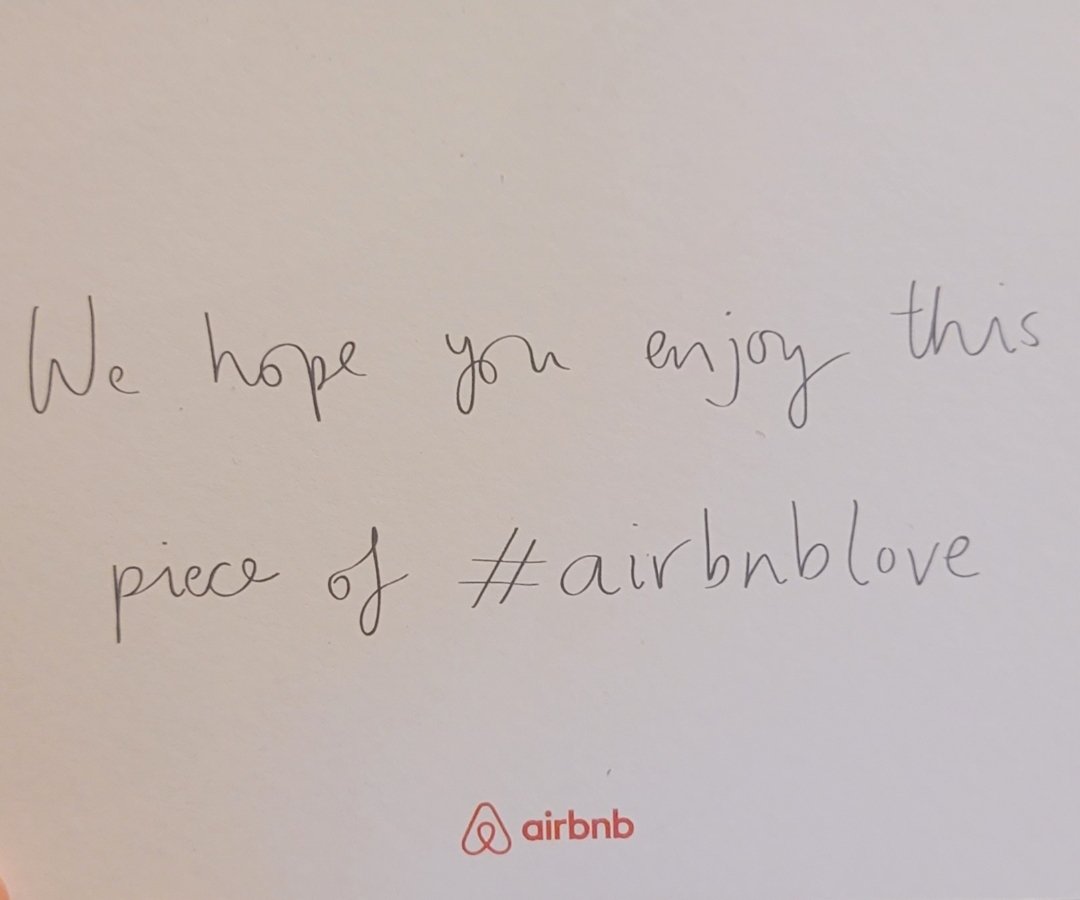 We hope you enjoy this
piece of #airbnblove
airbnb